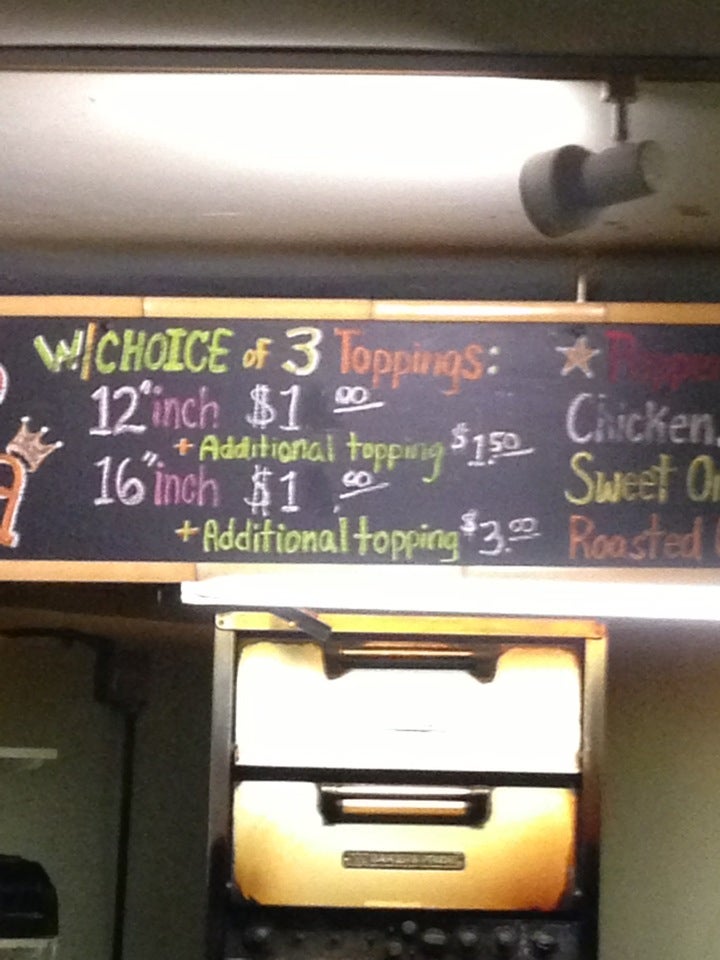 W/CHOICE of 3 Toppings:
12" inch $1 .00
+ Additional topping $1.50
16" inch $1 .00
+ Additional topping $3.00
Chicken,
Sweet
Roasted